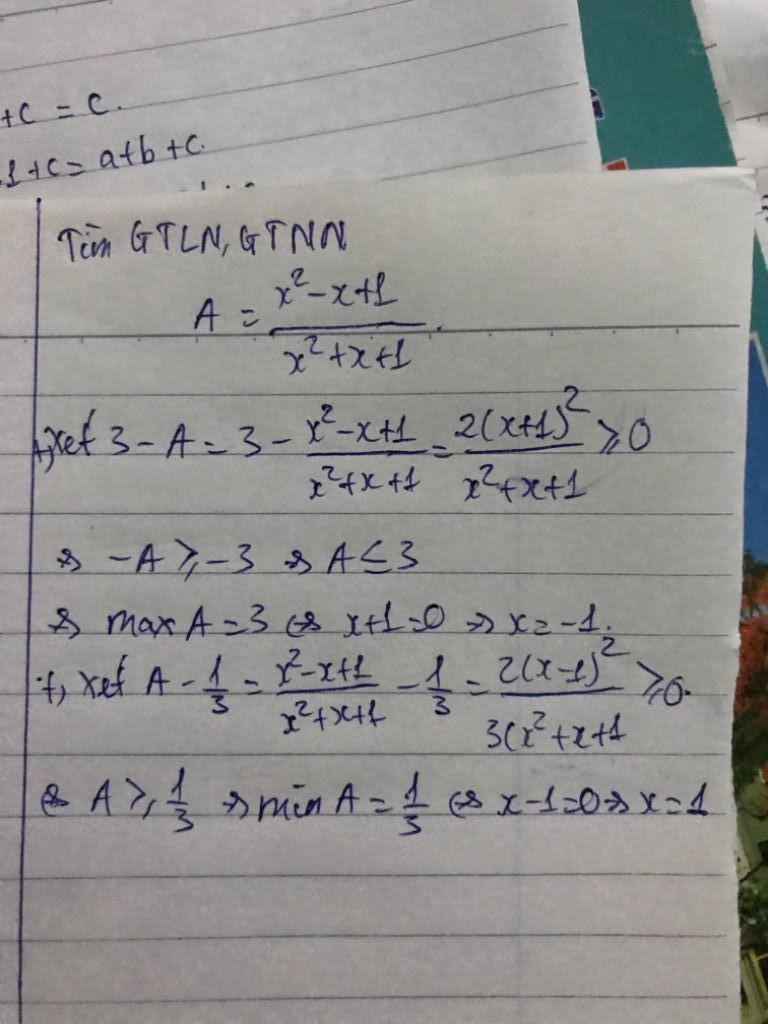 +c = c.
1+c = a+b+c.
Tìm GTLN, GTNN
A = \frac{x^2-x+1}{x^2+x+1}.
+, xét 3 - A = 3 - \frac{x^2-x+1}{x^2+x+1} = \frac{2(x+1)^2}{x^2+x+1} ≥ 0
⇒ -A ≥ -3 ⇒ A ≤ 3
⇒ max A = 3 ⇔ x+1=0 ⇒ x = -1.
+, xét A - \frac{1}{3} = \frac{x^2-x+1}{x^2+x+1} - \frac{1}{3} = \frac{2(x-1)^2}{3(x^2+x+1} ≥ 0.
⇔ A ≥ \frac{1}{3} ⇒ min A = \frac{1}{3} ⇔ x-1=0 ⇒ x = 1